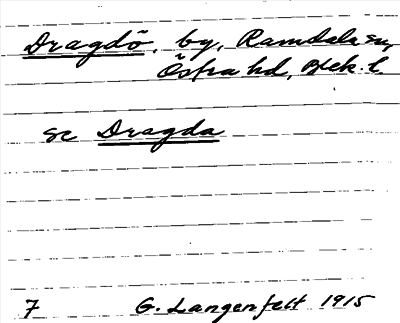 Dragdö, by, Ramdala sn,
Östra hd, Blek. l.
se Dragda
7 G. Langenfelt 1915